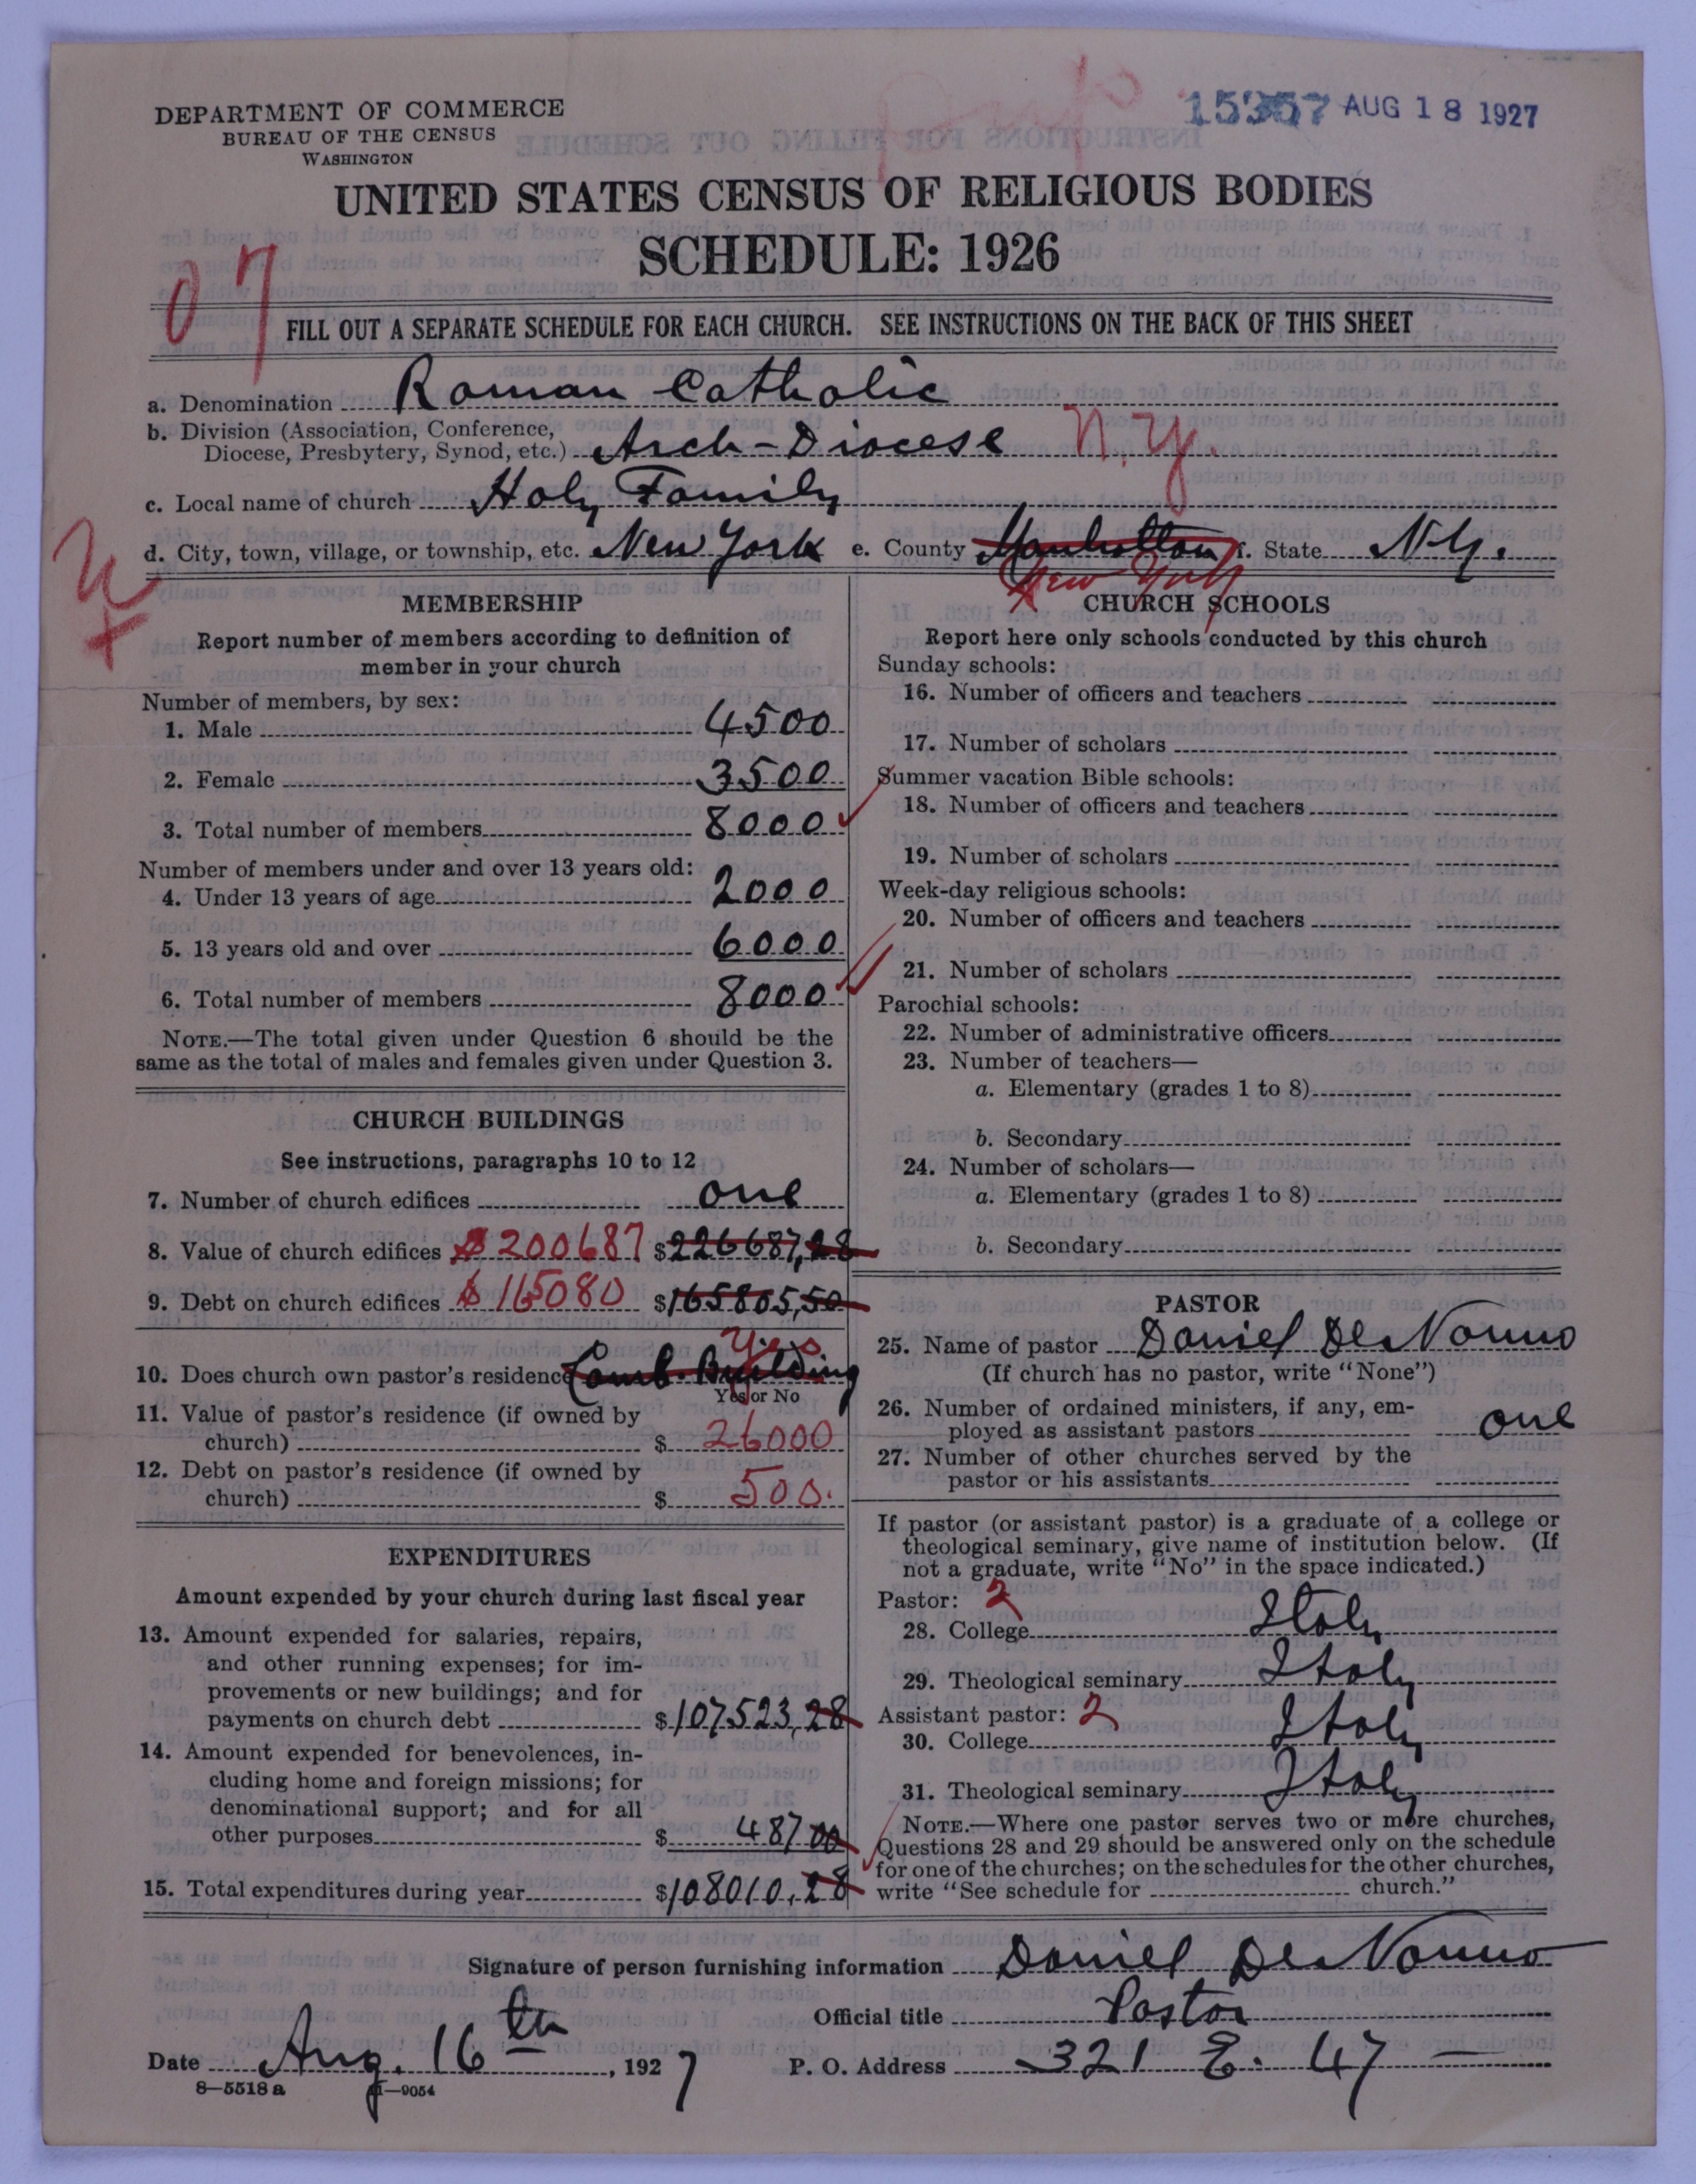 DEPARTMENT OF COMMERCE
BUREAU OF THE CENSUS
WASHINGTON
AUG 18 1927
UNITED STATES CENSUS OF RELIGIOUS BODIES
SCHEDULE: 1926
07
FILL OUT A SEPARATE SCHEDULE FOR EACH CHURCH. SEE INSTRUCTIONS ON THE BACK OF THIS SHEET
a. Denomination Roman Catholic
b. Division (Association, Conference,
Diocese, Presbytery, Synod, etc.) Arch-Diocese N.Y.
c. Local name of church Holy Family
d. City, town, village, or township, etc. New York e. County Manhattan f. State N.Y.
New York
MEMBERSHIP
Report number of members according to definition of
member in your church
Number of members, by sex:
1. Male 4500
2. Female 3500
3. Total number of members 8000
Number of members under and over 13 years old:
4. Under 13 years of age 2000
5. 13 years old and over 6000
6. Total number of members 8000
NOTE.—The total given under Question 6 should be the
same as the total of males and females given under Question 3.
CHURCH BUILDINGS
See instructions, paragraphs 10 to 12
7. Number of church edifices one
8. Value of church edifices $200687 $226687,28
9. Debt on church edifices $165080 $165805,50
Yes
10. Does church own pastor's residence Comb. Building
Yes or No
11. Value of pastor's residence (if owned by
church) $ 26000
12. Debt on pastor's residence (if owned by
church) $ 500.
EXPENDITURES
Amount expended by your church during last fiscal year
13. Amount expended for salaries, repairs,
and other running expenses; for im-
provements or new buildings; and for
payments on church debt $107523,28
14. Amount expended for benevolences, in-
cluding home and foreign missions; for
denominational support; and for all
other purposes $ 487 00
15. Total expenditures during year $108010,28
CHURCH SCHOOLS
Report here only schools conducted by this church
Sunday schools:
16. Number of officers and teachers
17. Number of scholars
Summer vacation Bible schools:
18. Number of officers and teachers
19. Number of scholars
Week-day religious schools:
20. Number of officers and teachers
21. Number of scholars
Parochial schools:
22. Number of administrative officers
23. Number of teachers—
a. Elementary (grades 1 to 8)
b. Secondary
24. Number of scholars—
a. Elementary (grades 1 to 8)
b. Secondary
PASTOR
25. Name of pastor Daniel De Nonno
(If church has no pastor, write "None")
26. Number of ordained ministers, if any, em-
ployed as assistant pastors one
27. Number of other churches served by the
pastor or his assistants
If pastor (or assistant pastor) is a graduate of a college or
theological seminary, give name of institution below. (If
not a graduate, write "No" in the space indicated.)
Pastor: 2
28. College Italy
29. Theological seminary Italy
Assistant pastor: 2
30. College Italy
31. Theological seminary Italy
NOTE.—Where one pastor serves two or more churches,
Questions 28 and 29 should be answered only on the schedule
for one of the churches; on the schedules for the other churches,
write "See schedule for church."
Signature of person furnishing information Daniel De Nonno
Official title Pastor
Date Aug. 16th, 1927 P. O. Address 321 E. 47 —
8—5518 a 11—9054